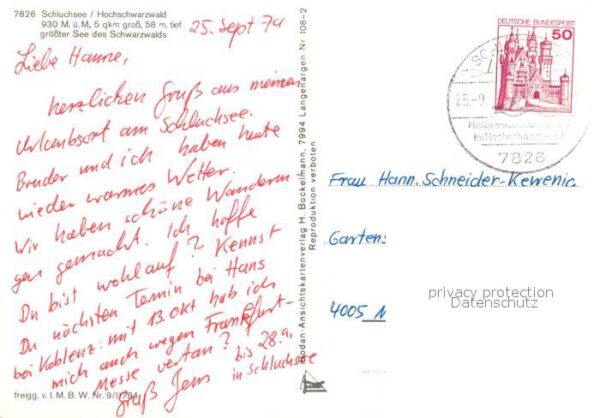 7826 Schluchsee / Hochschwarzwald
930 M. ü. M, 5 qkm groß, 58 m. tief
größter See des Schwarzwalds
25. Sept 79
Liebe Hanne,
herzlichen Gruß aus meinem
Urlaubsort am Schluchsee.
Bruder und ich haben heute
wieder warmes Wetter.
Wir haben schöne Wanderun
gen gemacht. Ich hoffe
Du bist wohlauf? Kennst
Du nächsten Termin bei Hans
bei Koblenz: mit 13. Okt hab ich
mich auch wegen Frankfurt-
Messe vertan? bis 28.9.
Gruß Jens in Schluchsee
freigg. v. I. M. B. W. Nr. 9/11784
Bodan-Ansichtskartenverlag H. Bockelmann, 7994 Langenargen Nr 108-2
Reproduktion verboten
DEUTSCHE BUNDESPOST
50
7826
Frau Hann. Schneider-Kewenig
Garten
4005
privacy protection
Datenschutz